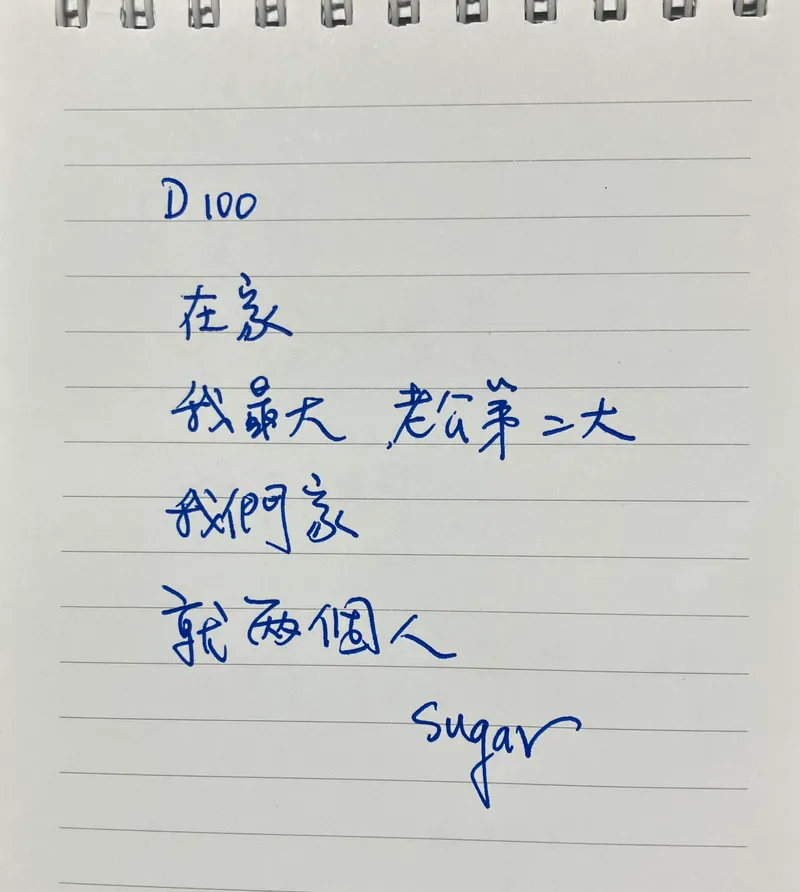 D 100
在家
我最大 老公第二大
我們家
就兩個人
sugar